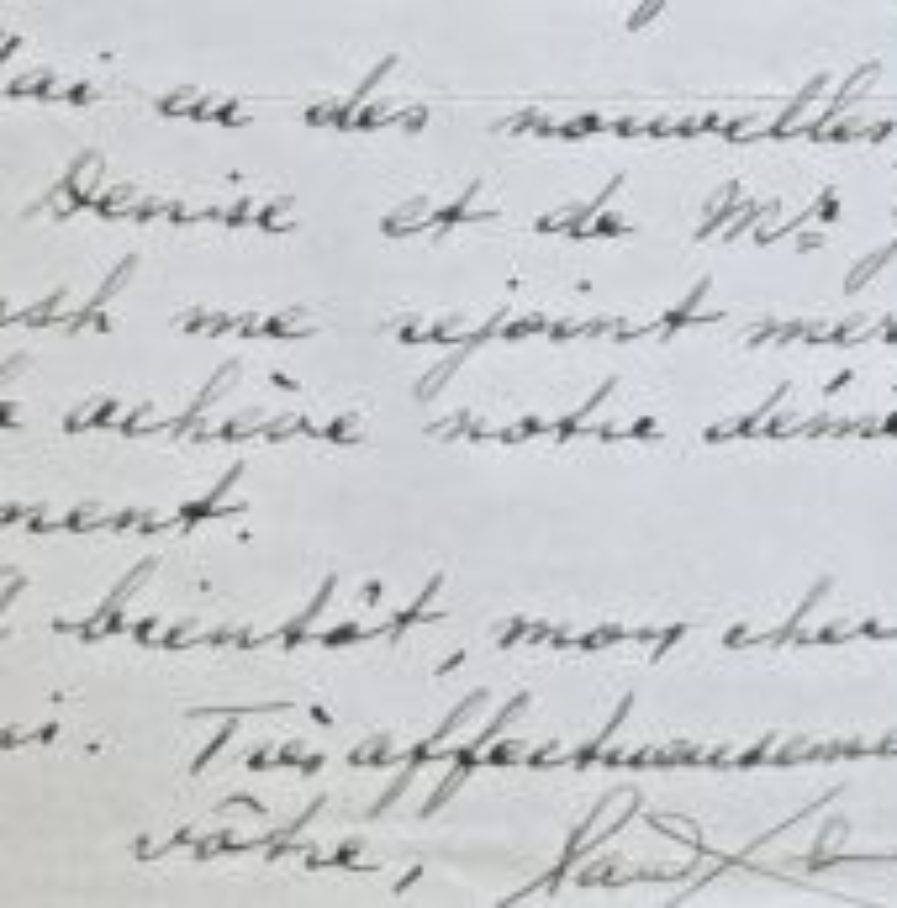 J'ai eu des nouvelles
Denise et de Mr
me rejoint
achève notre
ment.
A bientôt, mon cher
Très affectueuseme
vôtre,